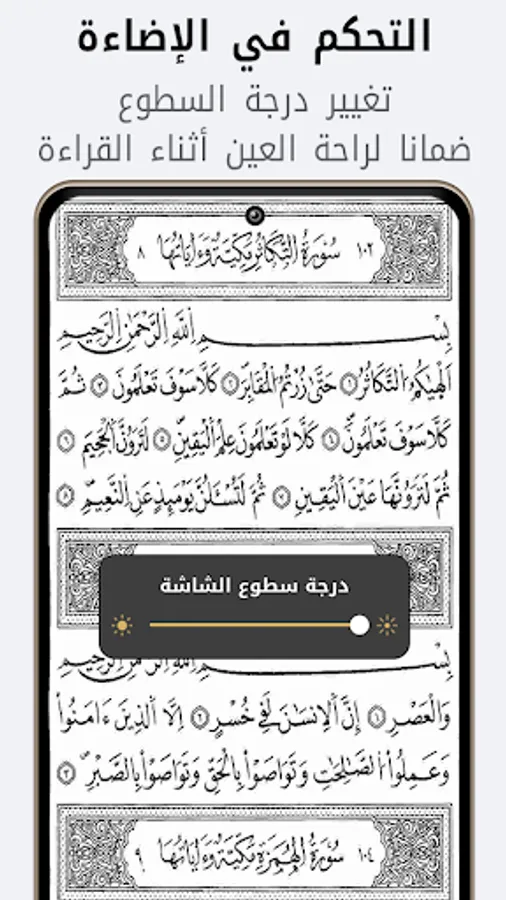 التحكم في الإضاءة
تغيير درجة السطوع
ضمانا لراحة العين أثناء القراءة
١٠٢ سُورَةُ التَّكَاثُرِ مَكِّيَّةٌ وَءَايَاتُهَا ٨
بِسْمِ اللَّهِ الرَّحْمَٰنِ الرَّحِيمِ
أَلْهَىٰكُمُ التَّكَاثُرُ ١ حَتَّىٰ زُرْتُمُ الْمَقَابِرَ ٢ كَلَّا سَوْفَ تَعْلَمُونَ ٣ ثُمَّ
كَلَّا سَوْفَ تَعْلَمُونَ ٤ كَلَّا لَوْ تَعْلَمُونَ عِلْمَ الْيَقِينِ ٥ لَتَرَوُنَّ الْجَحِيمَ ٦
ثُمَّ لَتَرَوُنَّهَا عَيْنَ الْيَقِينِ ٧ ثُمَّ لَتُسْـَٔلُنَّ يَوْمَئِذٍ عَنِ النَّعِيمِ ٨
درجة سطوع الشاشة
وَالْعَصْرِ ١ إِنَّ الْإِنسَٰنَ لَفِي خُسْرٍ ٢ إِلَّا الَّذِينَ ءَامَنُوا
وَعَمِلُوا الصَّٰلِحَٰتِ وَتَوَاصَوْا بِالْحَقِّ وَتَوَاصَوْا بِالصَّبْرِ ٣
١٠٤ سُورَةُ الْهُمَزَةِ مَكِّيَّةٌ وَءَايَاتُهَا ٩